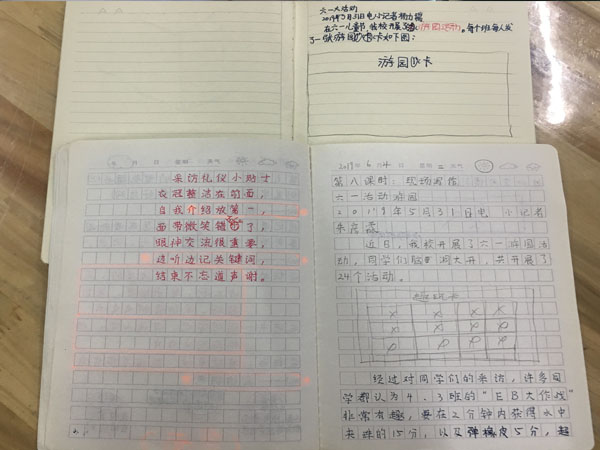 六一大活动
2019年5月31日电 小记者
在六一儿童节,我校开展了游园活动。每个班每人发
了一张游园卡如下图:
游园卡
月 日 星期 天气
采访礼仪小贴士
衣冠整洁在前面,
自我介绍放第一,
面带微笑错不了,
眼神交流很重要,
边听边记关键词,
结束不忘道声谢。
2019年6月4日 星期二 天气
第八课时:现场写作
六一活动游园
2019年5月31日电 小记者
近日,我校开展了六一游园活
动,同学们脑洞大开,共开展了
24个活动。
经过对同学们的采访,许多同
学都认为4.3班的“EB大作战”
非常有趣,要在2分钟内获得水中
夹珠的15分,以及弹橡皮5分,超